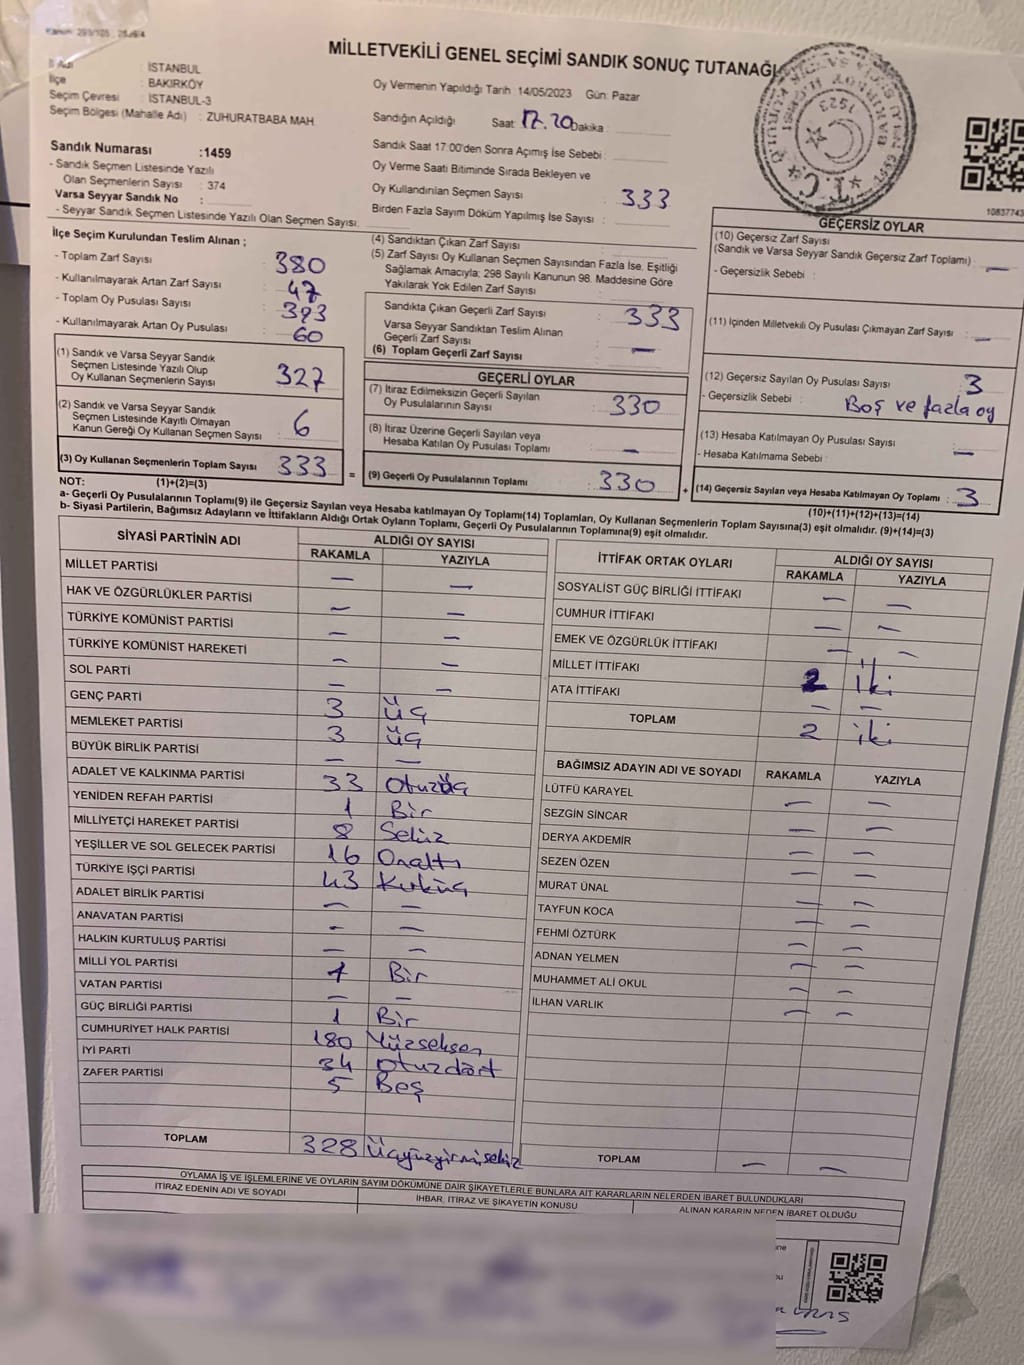 Kanun: 298/105
MİLLETVEKİLİ GENEL SEÇİMİ SANDIK SONUÇ TUTANAĞI
İl Adı : İSTANBUL
İlçe : BAKIRKÖY
Seçim Çevresi : İSTANBUL-3
Seçim Bölgesi (Mahalle Adı) : ZUHURATBABA MAH.
Sandık Numarası :1459
- Sandık Seçmen Listesinde Yazılı
Olan Seçmenlerin Sayısı : 374
Varsa Seyyar Sandık No :
- Seyyar Sandık Seçmen Listesinde Yazılı Olan Seçmen Sayısı:
Oy Vermenin Yapıldığı Tarih : 14/05/2023 Gün: Pazar
Sandığın Açıldığı Saat: 17.20 Dakika :
Sandık Saat 17:00'den Sonra Açımış İse Sebebi :
Oy Verme Saati Bitiminde Sırada Bekleyen ve
Oy Kullandırılan Seçmen Sayısı : 333
Birden Fazla Sayım Döküm Yapılmış İse Sayısı :
T.C.
1923
10837743
İlçe Seçim Kurulundan Teslim Alınan ;
- Toplam Zarf Sayısı : 380
- Kullanılmayarak Artan Zarf Sayısı : 47
- Toplam Oy Pusulası Sayısı : 393
- Kullanılmayarak Artan Oy Pusulası : 60
(1) Sandık ve Varsa Seyyar Sandık
Seçmen Listesinde Yazılı Olup
Oy Kullanan Seçmenlerin Sayısı : 327
(2) Sandık ve Varsa Seyyar Sandık
Seçmen Listesinde Kayıtlı Olmayan
Kanun Gereği Oy Kullanan Seçmen Sayısı : 6
(3) Oy Kullanan Seçmenlerin Toplam Sayısı : 333 =
(4) Sandıktan Çıkan Zarf Sayısı :
(5) Zarf Sayısı Oy Kullanan Seçmen Sayısından Fazla İse, Eşitliği
Sağlamak Amacıyla; 298 Sayılı Kanunun 98. Maddesine Göre
Yakılarak Yok Edilen Zarf Sayısı :
Sandıkta Çıkan Geçerli Zarf Sayısı : 333
Varsa Seyyar Sandıktan Teslim Alınan
Geçerli Zarf Sayısı : —
(6) Toplam Geçerli Zarf Sayısı :
GEÇERLİ OYLAR
(7) İtiraz Edilmeksizin Geçerli Sayılan
Oy Pusulalarının Sayısı : 330
(8) İtiraz Üzerine Geçerli Sayılan veya
Hesaba Katılan Oy Pusulası Toplamı : —
(9) Geçerli Oy Pusulalarının Toplamı : 330 +
GEÇERSİZ OYLAR
(10) Geçersiz Zarf Sayısı
(Sandık ve Varsa Seyyar Sandık Geçersiz Zarf Toplamı) : —
- Geçersizlik Sebebi :
(11) İçinden Milletvekili Oy Pusulası Çıkmayan Zarf Sayısı : —
(12) Geçersiz Sayılan Oy Pusulası Sayısı : 3
- Geçersizlik Sebebi : Boş ve fazla oy
(13) Hesaba Katılmayan Oy Pusulası Sayısı : —
- Hesaba Katılmama Sebebi :
(14) Geçersiz Sayılan veya Hesaba Katılmayan Oy Toplamı : 3
NOT: (1)+(2)=(3)
(10)+(11)+(12)+(13)=(14)
a- Geçerli Oy Pusulalarının Toplamı(9) ile Geçersiz Sayılan veya Hesaba katılmayan Oy Toplamı(14) Toplamları, Oy Kullanan Seçmenlerin Toplam Sayısına(3) eşit olmalıdır. (9)+(14)=(3)
b- Siyasi Partilerin, Bağımsız Adayların ve İttifakların Aldığı Ortak Oyların Toplamı, Geçerli Oy Pusulalarının Toplamına(9) eşit olmalıdır.
SİYASİ PARTİNİN ADI ALDIĞI OY SAYISI
RAKAMLA YAZIYLA
MİLLET PARTİSİ — —
HAK VE ÖZGÜRLÜKLER PARTİSİ — —
TÜRKİYE KOMÜNİST PARTİSİ — —
TÜRKİYE KOMÜNİST HAREKETİ — —
SOL PARTİ — —
GENÇ PARTİ 3 üç
MEMLEKET PARTİSİ 3 üç
BÜYÜK BİRLİK PARTİSİ — —
ADALET VE KALKINMA PARTİSİ 33 Otuzüç
YENİDEN REFAH PARTİSİ 1 Bir
MİLLİYETÇİ HAREKET PARTİSİ 8 Sekiz
YEŞİLLER VE SOL GELECEK PARTİSİ 16 Onaltı
TÜRKİYE İŞÇİ PARTİSİ 43 Kırküç
ADALET BİRLİK PARTİSİ — —
ANAVATAN PARTİSİ — —
HALKIN KURTULUŞ PARTİSİ — —
MİLLİ YOL PARTİSİ 1 Bir
VATAN PARTİSİ — —
GÜÇ BİRLİĞİ PARTİSİ 1 Bir
CUMHURİYET HALK PARTİSİ 180 Yüzseksen
İYİ PARTİ 34 Otuzdört
ZAFER PARTİSİ 5 Beş
TOPLAM 328 Üçyüzyirmisekiz
İTTİFAK ORTAK OYLARI ALDIĞI OY SAYISI
RAKAMLA YAZIYLA
SOSYALİST GÜÇ BİRLİĞİ İTTİFAKI — —
CUMHUR İTTİFAKI — —
EMEK VE ÖZGÜRLÜK İTTİFAKI — —
MİLLET İTTİFAKI 2 iki
ATA İTTİFAKI — —
TOPLAM 2 iki
BAĞIMSIZ ADAYIN ADI VE SOYADI RAKAMLA YAZIYLA
LÜTFÜ KARAYEL — —
SEZGİN SİNCAR — —
DERYA AKDEMİR — —
SEZEN ÖZEN — —
MURAT ÜNAL — —
TAYFUN KOCA — —
FEHMİ ÖZTÜRK — —
ADNAN YELMEN — —
MUHAMMET ALİ OKUL — —
İLHAN VARLIK — —
TOPLAM — —
OYLAMA İŞ VE İŞLEMLERİNE VE OYLARIN SAYIM DÖKÜMÜNE DAİR ŞİKAYETLERLE BUNLARA AİT KARARLARIN NELERDEN İBARET BULUNDUKLARI
İTİRAZ EDENİN ADI VE SOYADI İHBAR, İTİRAZ VE ŞİKAYETİN KONUSU ALINAN KARARIN NEDEN İBARET OLDUĞU